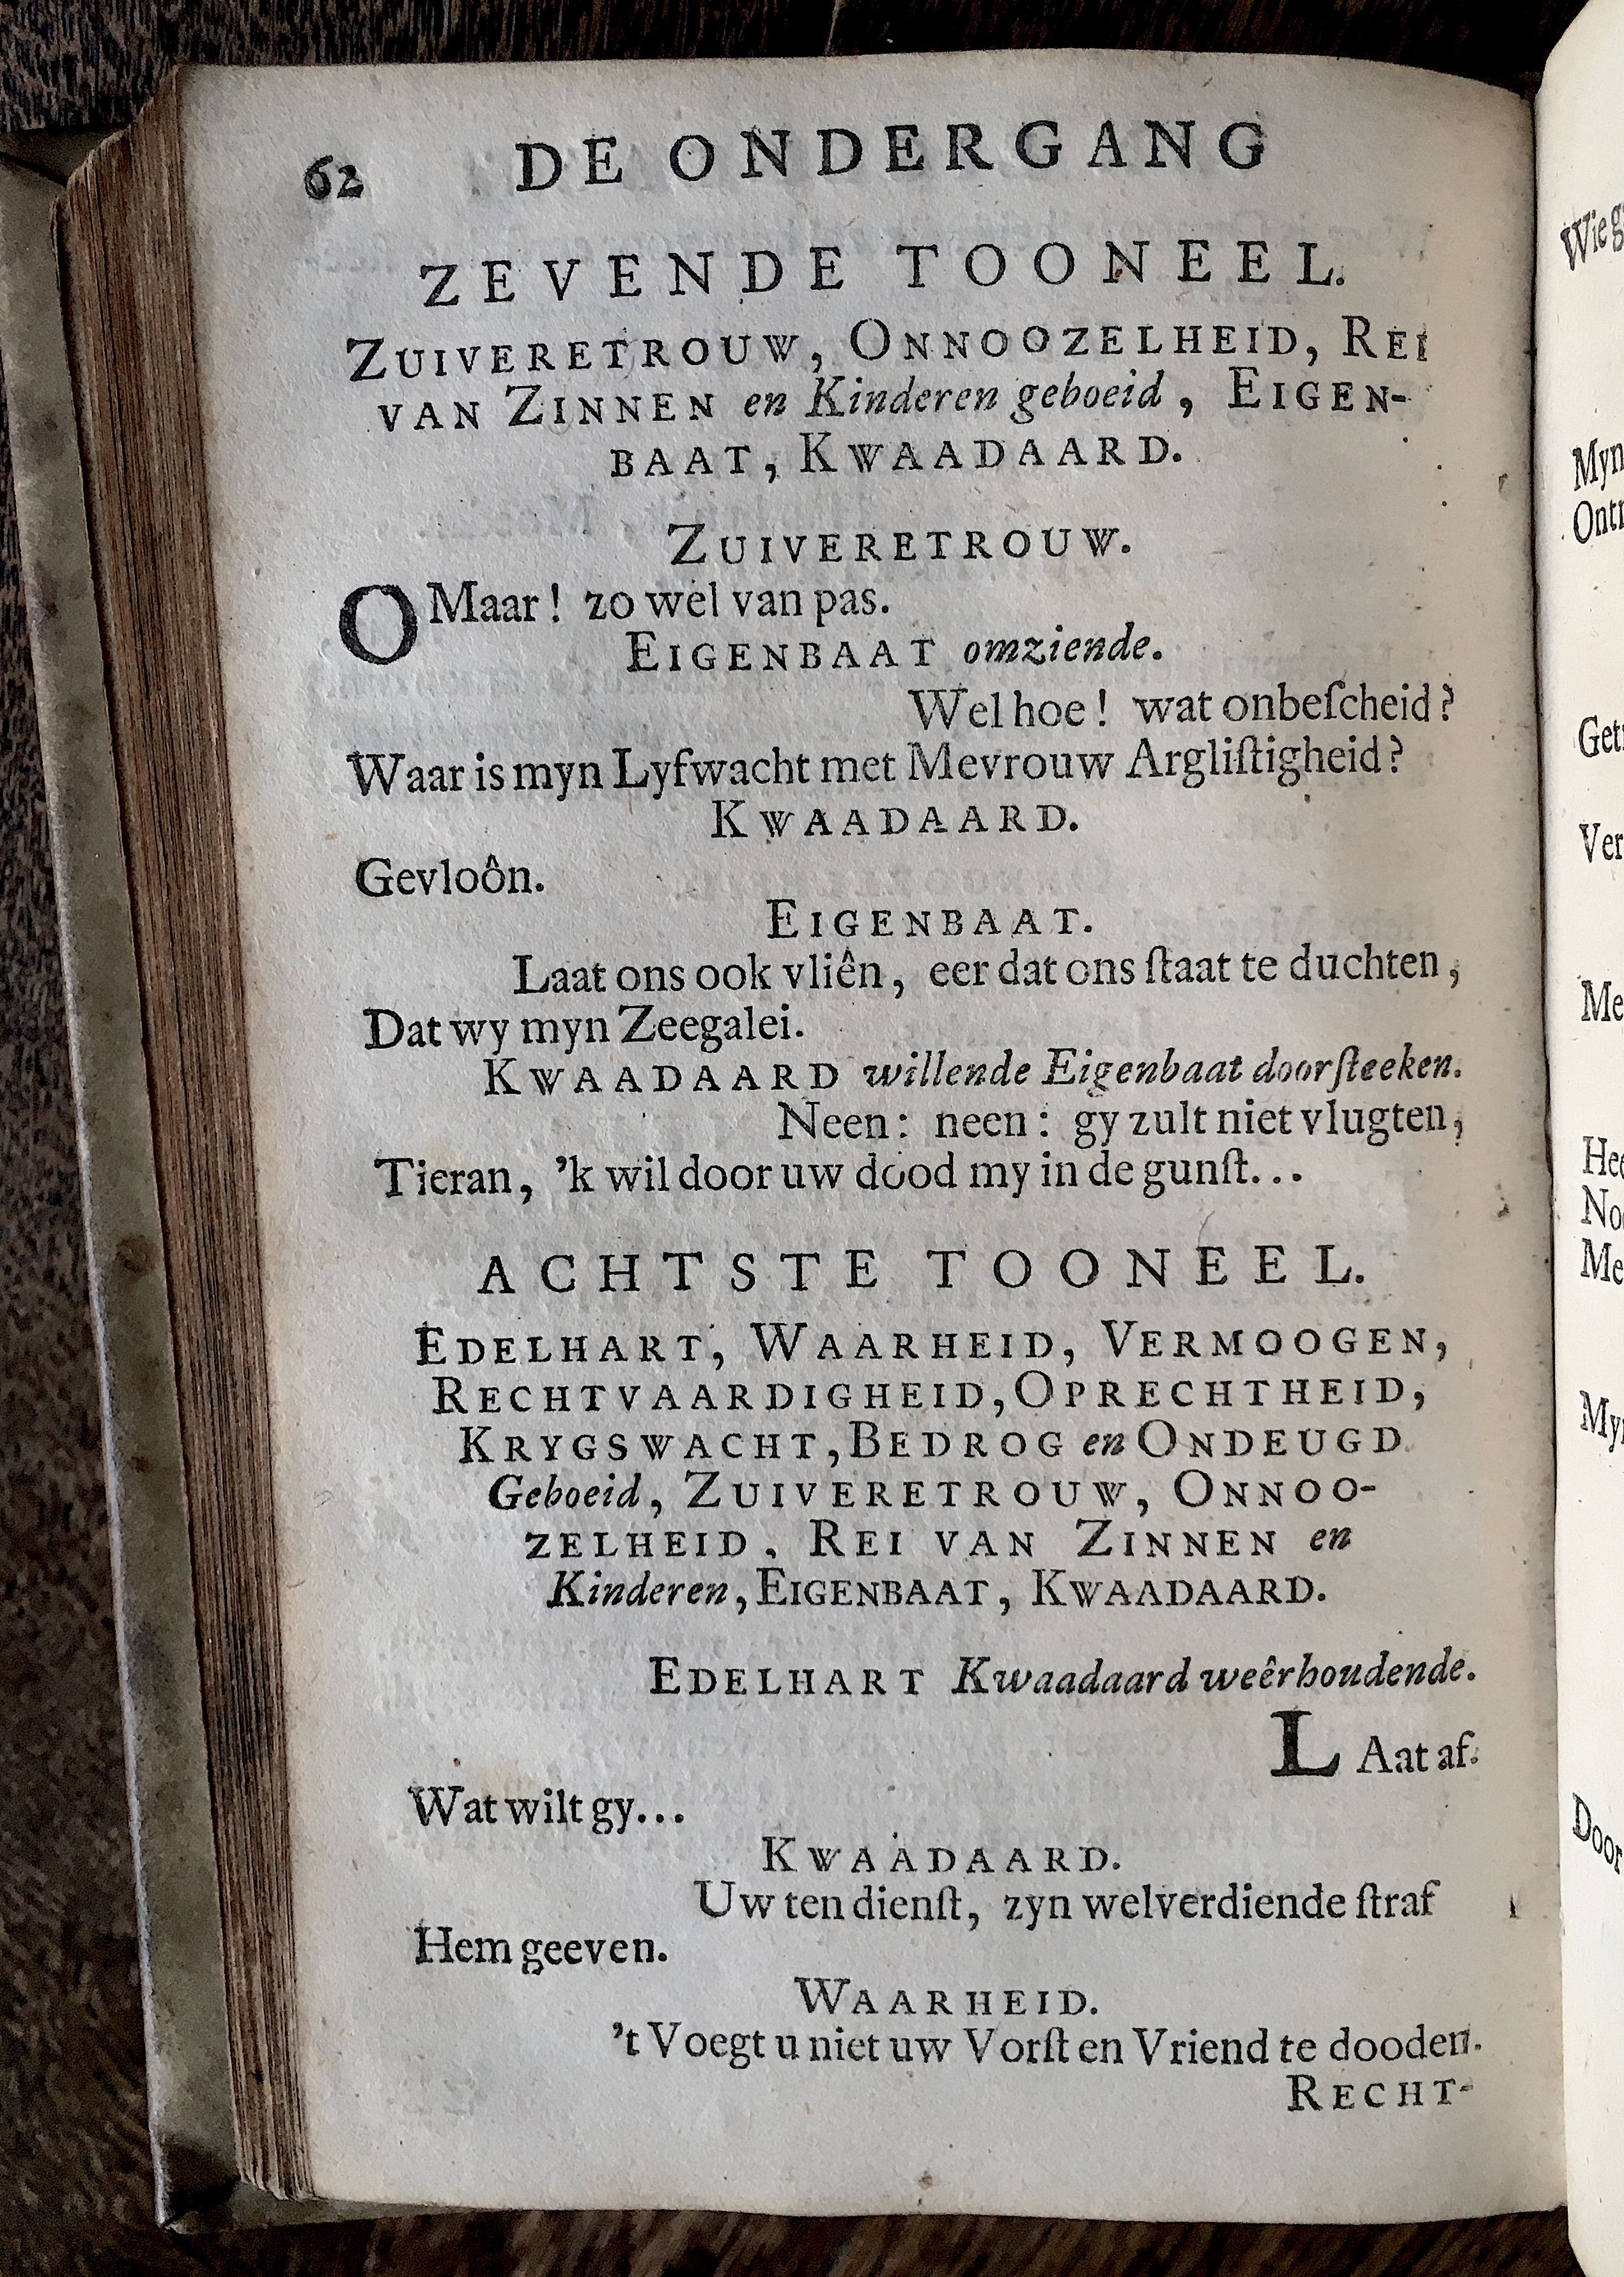 62 DE ONDERGANG
ZEVENDE TOONEEL.
ZUIVERETROUW, ONNOOZELHEID, REI
VAN ZINNEN en Kinderen geboeid, EIGEN-
BAAT, KWAADAARD.
ZUIVERETROUW.
O Maar! zo wel van pas.
EIGENBAAT omziende.
Wel hoe! wat onbeſcheid?
Waar is myn Lyfwacht met Mevrouw Argliſtigheid?
KWAADAARD.
Gevloôn.
EIGENBAAT.
Laat ons ook vliên, eer dat ons ſtaat te duchten,
Dat wy myn Zeegalei.
KWAADAARD willende Eigenbaat doorſteeken.
Neen: neen: gy zult niet vlugten,
Tieran, 'k wil door uw dood my in de gunſt...
ACHTSTE TOONEEL.
EDELHART, WAARHEID, VERMOOGEN,
RECHTVAARDIGHEID, OPRECHTHEID,
KRYGSWACHT, BEDROG en ONDEUGD
Geboeid, ZUIVERETROUW, ONNOO-
ZELHEID, REI VAN ZINNEN en
Kinderen, EIGENBAAT, KWAADAARD.
EDELHART Kwaadaard weêrhoudende.
LAat af.
Wat wilt gy...
KWAADAARD.
Uw ten dienſt, zyn welverdiende ſtraf
Hem geeven.
WAARHEID.
't Voegt u niet uw Vorſt en Vriend te dooden.
RECHT-